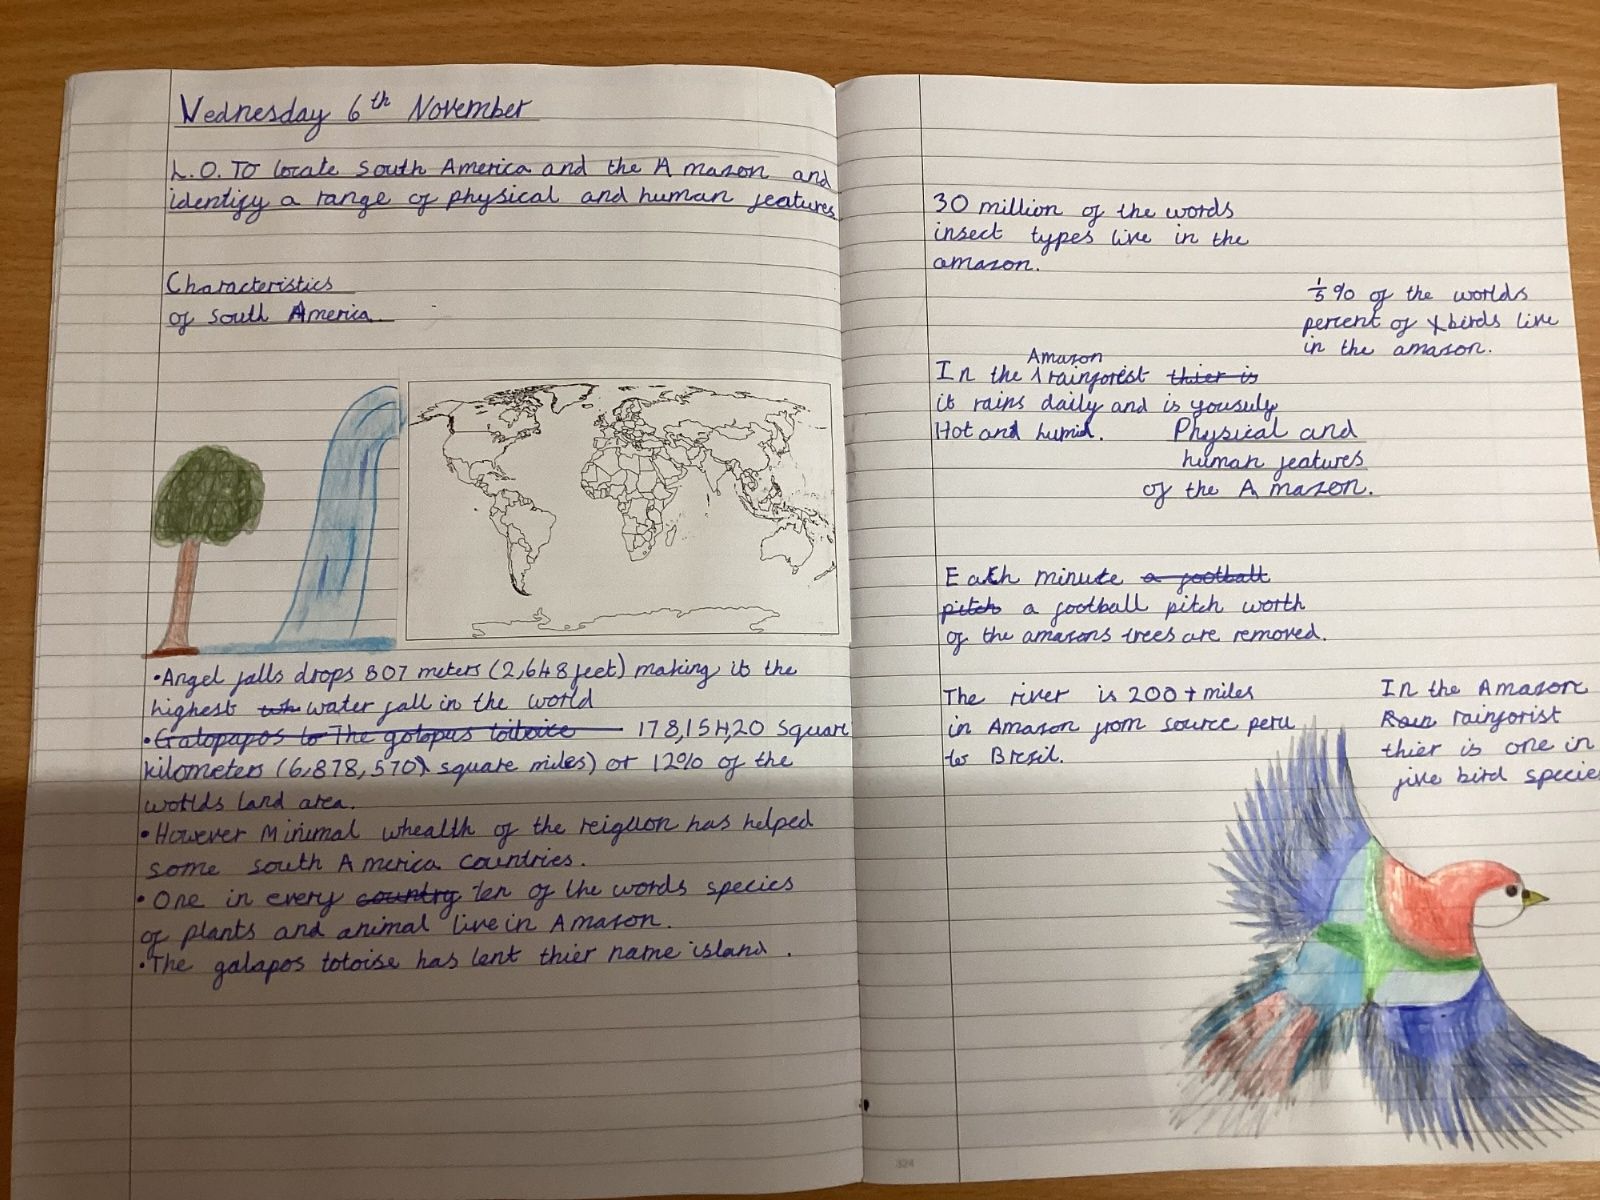 Wednesday 6th November
L.O. To locate South America and the Amazon and
identify a range of physical and human features
Characteristics
of South America.
•Angel falls drops 807 meters (2,648 feet) making it the
highest water fall in the world
•Gatopapos to The gotopus toitoice 178,154,20 square
kilometers (6,878,570) square miles) or 12% of the
worlds land area.
•However Minimal whealth of the reiguon has helped
some south America countries.
•One in every country ten of the words species
of plants and animal live in Amazon.
•The galapos totoise has lent thier name island.
30 million of the words
insect types live in the
amazon.
1/5% of the worlds
percent of birds live
in the amazon.
In the Amazon rainforest thier is
it rains daily and is yousuly
Hot and humid.
Physical and
human features
of the Amazon.
Each minute a football
pitch a football pitch worth
of the amazons trees are removed.
The river is 200+ miles
in Amazon from source peru
to Bresil.
In the Amazon
Rain rainforist
thier is one in
five bird specie
324